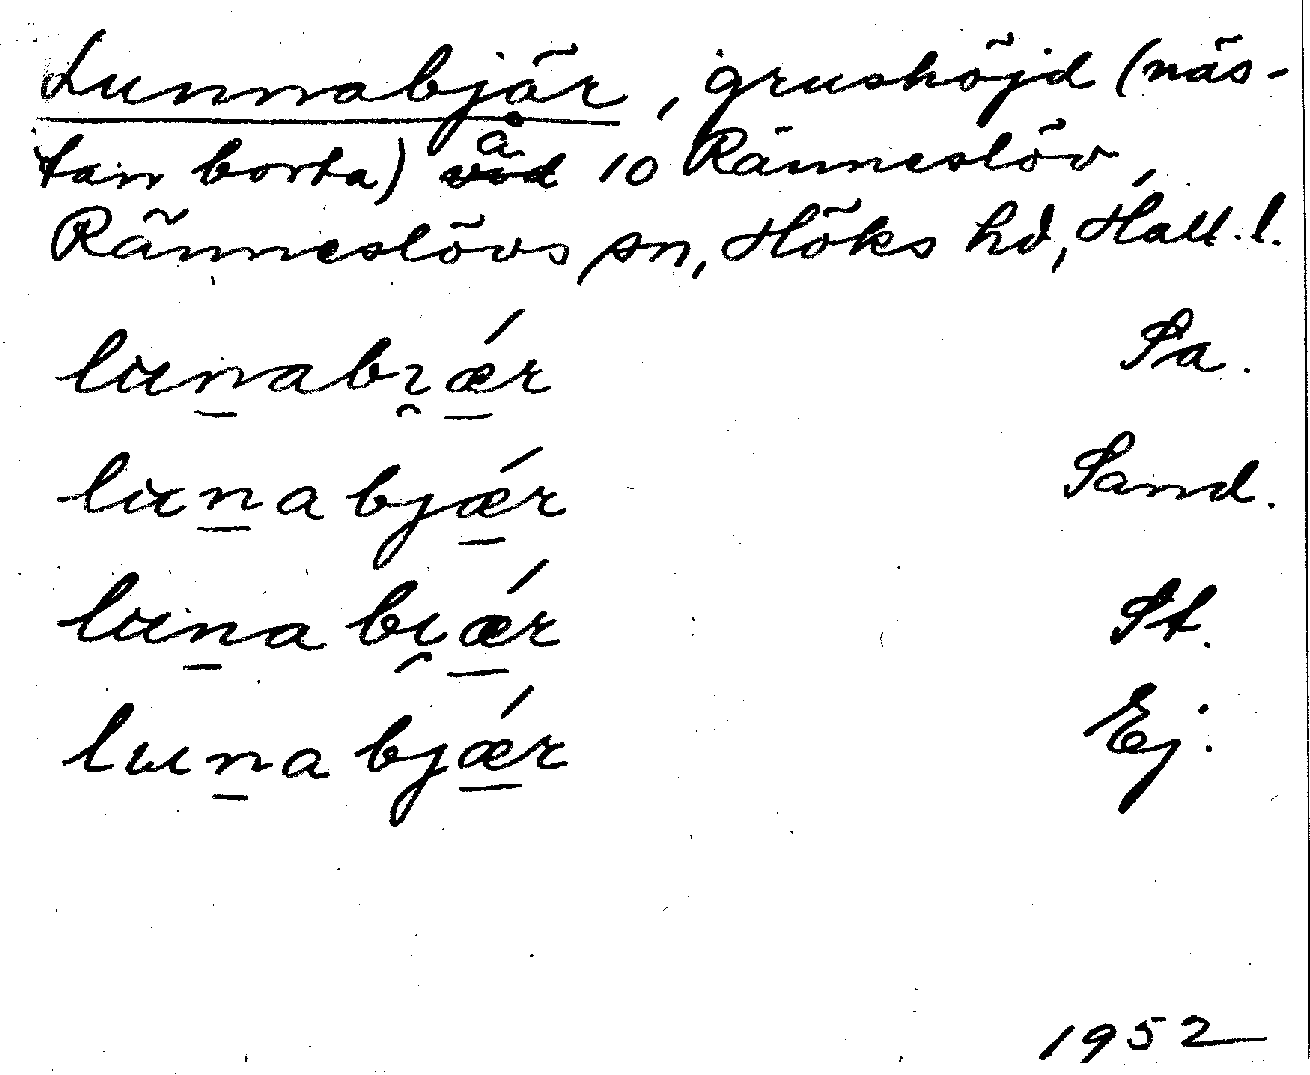 Lunnabjär, grushöjd (näs-
tan borta) å 10 Ränneslöv,
Ränneslövs sn, Höks hd, Hall. l.
lunabi̯ǽr Sa.
lunabjǽr Sand.
lunabi̯ǽr St.
lunabjǽr Ej.
1952